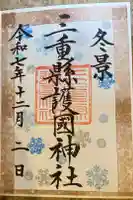 冬景
三重縣護國神社
令和七年十二月二日